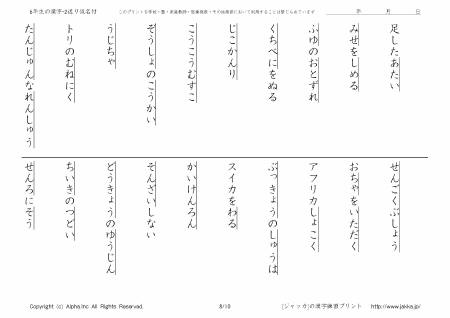 6年生の漢字-2送り仮名付
このプリントを学校・塾・家庭教師・医療機関・その他施設において利用することは禁じられています
年 月 日
足したあたい
みせをしめる
ふゆのおとずれ
くちべにをぬる
じこかんり
こうこうむすこ
ぞうしょのこうかい
うじちゃ
トリのむねにく
たんじゅんなれんしゅう
せんごくぶしょう
おちゃをいただく
アフリカしょこく
ぶっきょうのしゅうは
スイカをわる
かいけんろん
そんざいしない
どうきょうのゆうじん
ちいきのつどい
せんろにそう
Copyright (c) Alpha.Inc All Rights Reserved.
8/10
[ジャッカ]の漢字練習プリント http://www.jakka.jp/